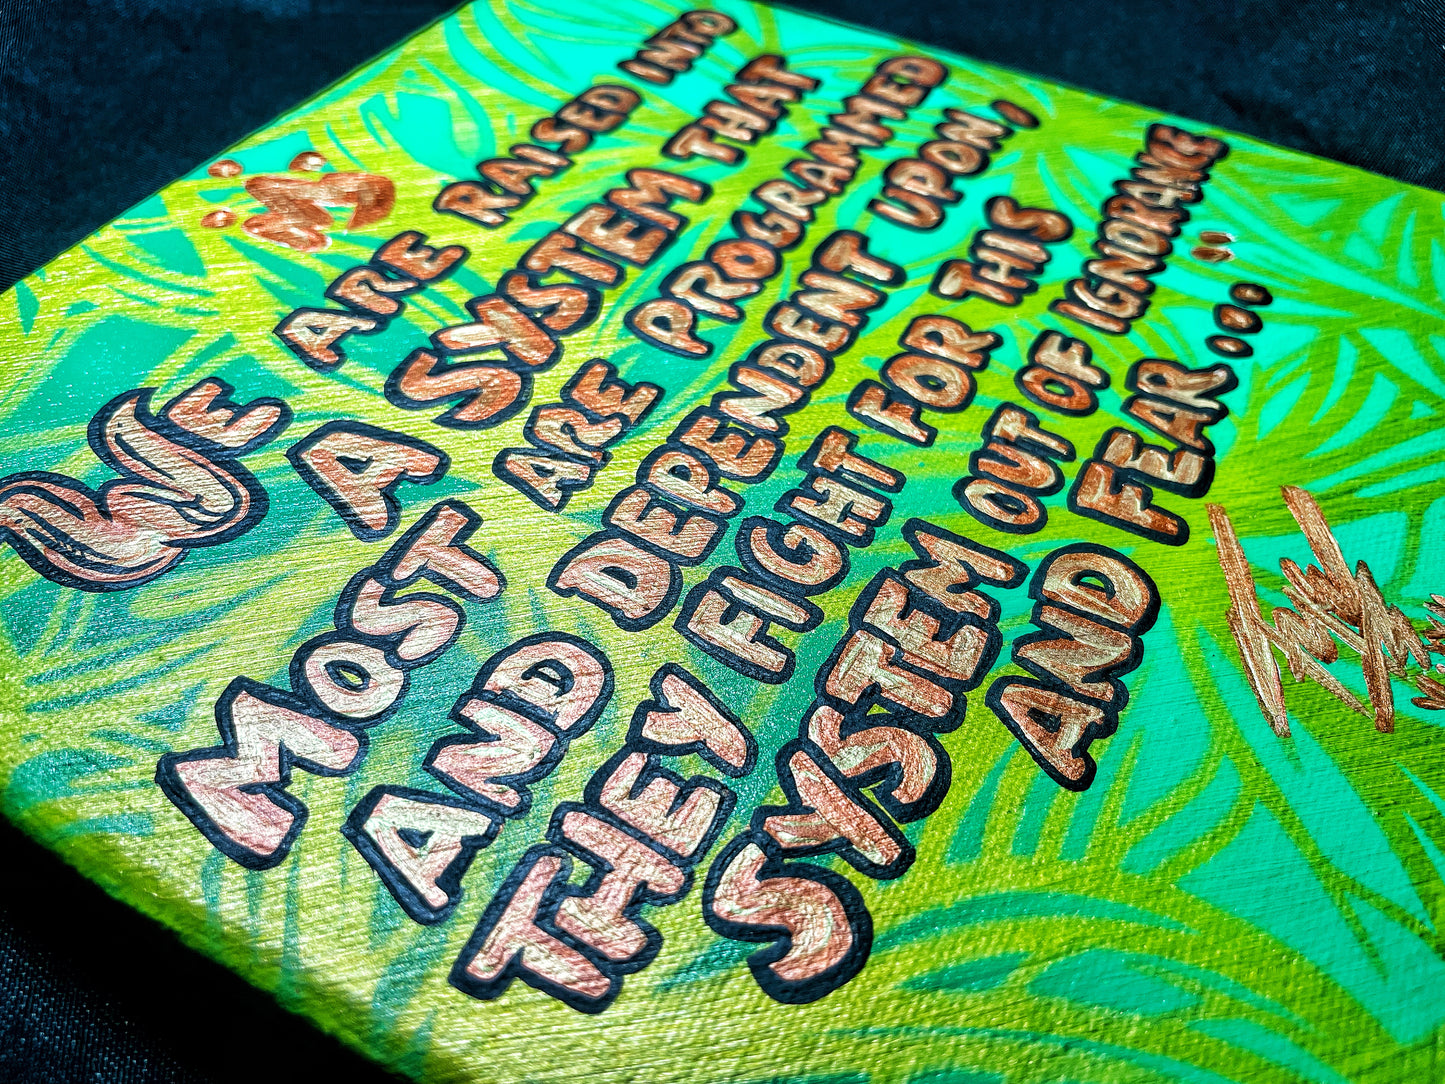 WE ARE RAISED INTO
A SYSTEM THAT
MOST ARE PROGRAMMED
AND DEPENDENT UPON,
THEY FIGHT FOR THIS
SYSTEM OUT OF IGNORANCE
AND FEAR...